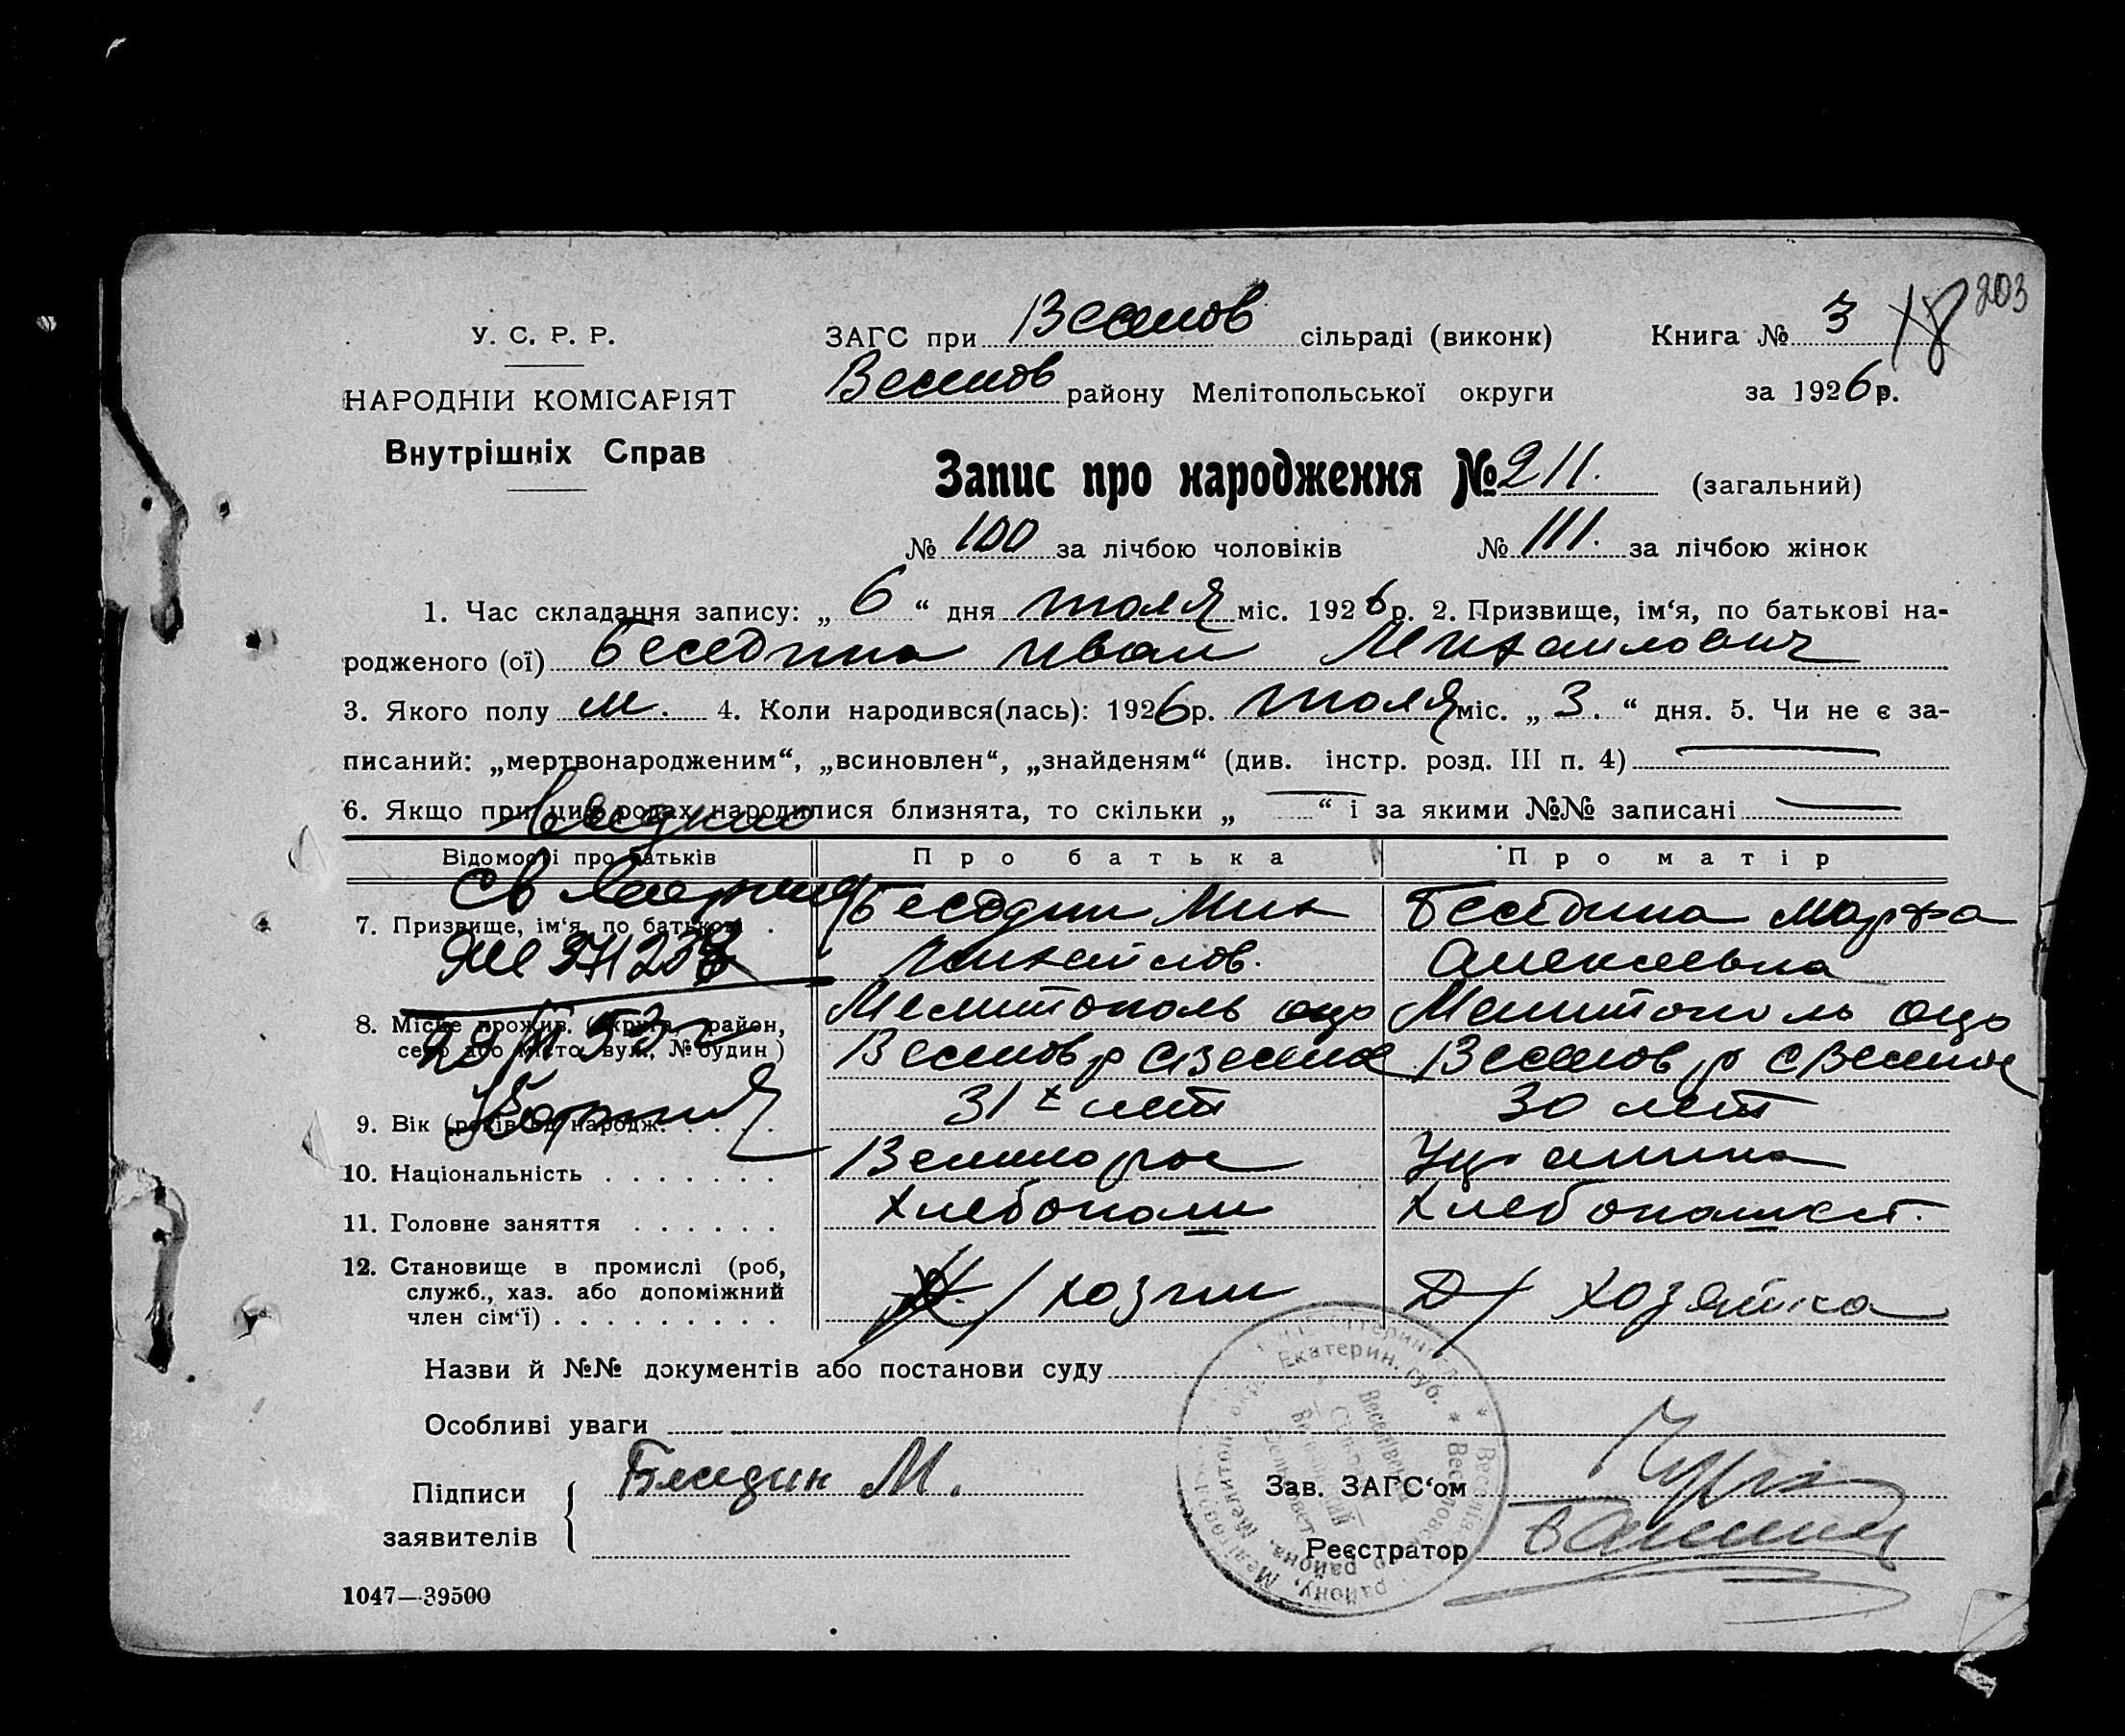 203
У. С. Р. Р.
НАРОДНІЙ КОМІСАРІЯТ
Внутрішніх Справ
ЗАГС при Веселов сільраді (виконк) Книга № 3 18
Веселов району Мелітопольської округи за 1926 р.
Запис про народження № 211. (загальний)
№ 100 за лічбою чоловіків № 111. за лічбою жінок
1. Час складання запису: „ 6 “ дня июля міс. 1926 р. 2. Призвище, ім‘я, по батькові на-
родженого (ої) Беседина Иван Михаилович
3. Якого полу м. 4. Коли народився(лась): 1926 р. июля міс. „ 3. “ дня. 5. Чи не є за-
писаний: „мертвонародженим“, „всиновлен“, „знайденям“ (див. інстр. розд. III п. 4)
6. Якщо при цих родах народилися близнята, то скільки „ “ і за якими №№ записані
Відомості про батьків Про батька Про матір
7. Призвище, ім‘я, по батькові . Беседин Мих Беседина Марфа
Михайлов. Алексеевна
8. Місце прожив. (округа, район, Мелитополь окр Мелитополь окр
село або місто, вул., № будин) Веселов р с Веселое Веселов р с Веселое
9. Вік (років від народж. . . . . 31 лет 30 лет
10. Національність . . . . . . . Великорос Украинка
11. Головне заняття . . . . . . Хлебопаш Хлебопашест.
12. Становище в промислі (роб, служб., хаз. або допоміжний член сім‘ї) . . . . . . . . . хозяин Д/ хозяйка
Назви й №№ документів або постанови суду
Особливі уваги
Підписи заявителів Беседин М.
Зав. ЗАГС‘ом
Реєстратор
1047—39500